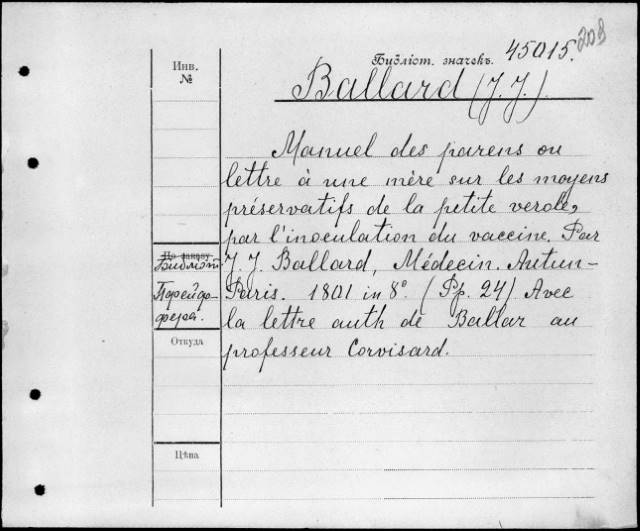 208
Инв.
№
Библіот. значекъ. 45015.
Ballard (J. J.)
Manuel des parens ou
lettre à une mère sur les moyens
préservatifs de la petite verole,
par l'inoculation du vaccine. Par
J. J. Ballard, Médecin. Autun-
Paris. 1801 in 8°. (Pp. 24) Avec
la lettre auth de Ballar au
professeur Corvisard.
По заказу
Библіот
Пфейфе-
фера.
Откуда
Цѣна